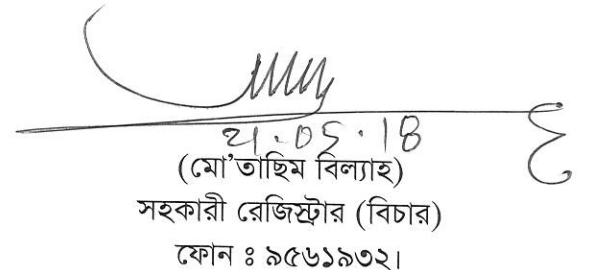 (মো'তাছিম বিল্যাহ)
সহকারী রেজিস্ট্রার (বিচার)
ফোন ঃ ৯৫৬১৯৩২।